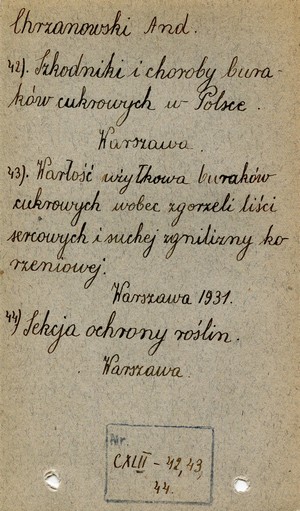 Chrzanowski And.
42). Szkodniki i choroby bura-
ków cukrowych w Polsce.
Warszawa.
43). Wartość użytkowa buraków
cukrowych wobec zgorzeli liści
sercowych i suchej zgnilizny ko-
rzeniowej.
Warszawa 1931.
44) Sekcja ochrony roślin.
Warszawa
Nr.
CXLII - 42, 43,
44.